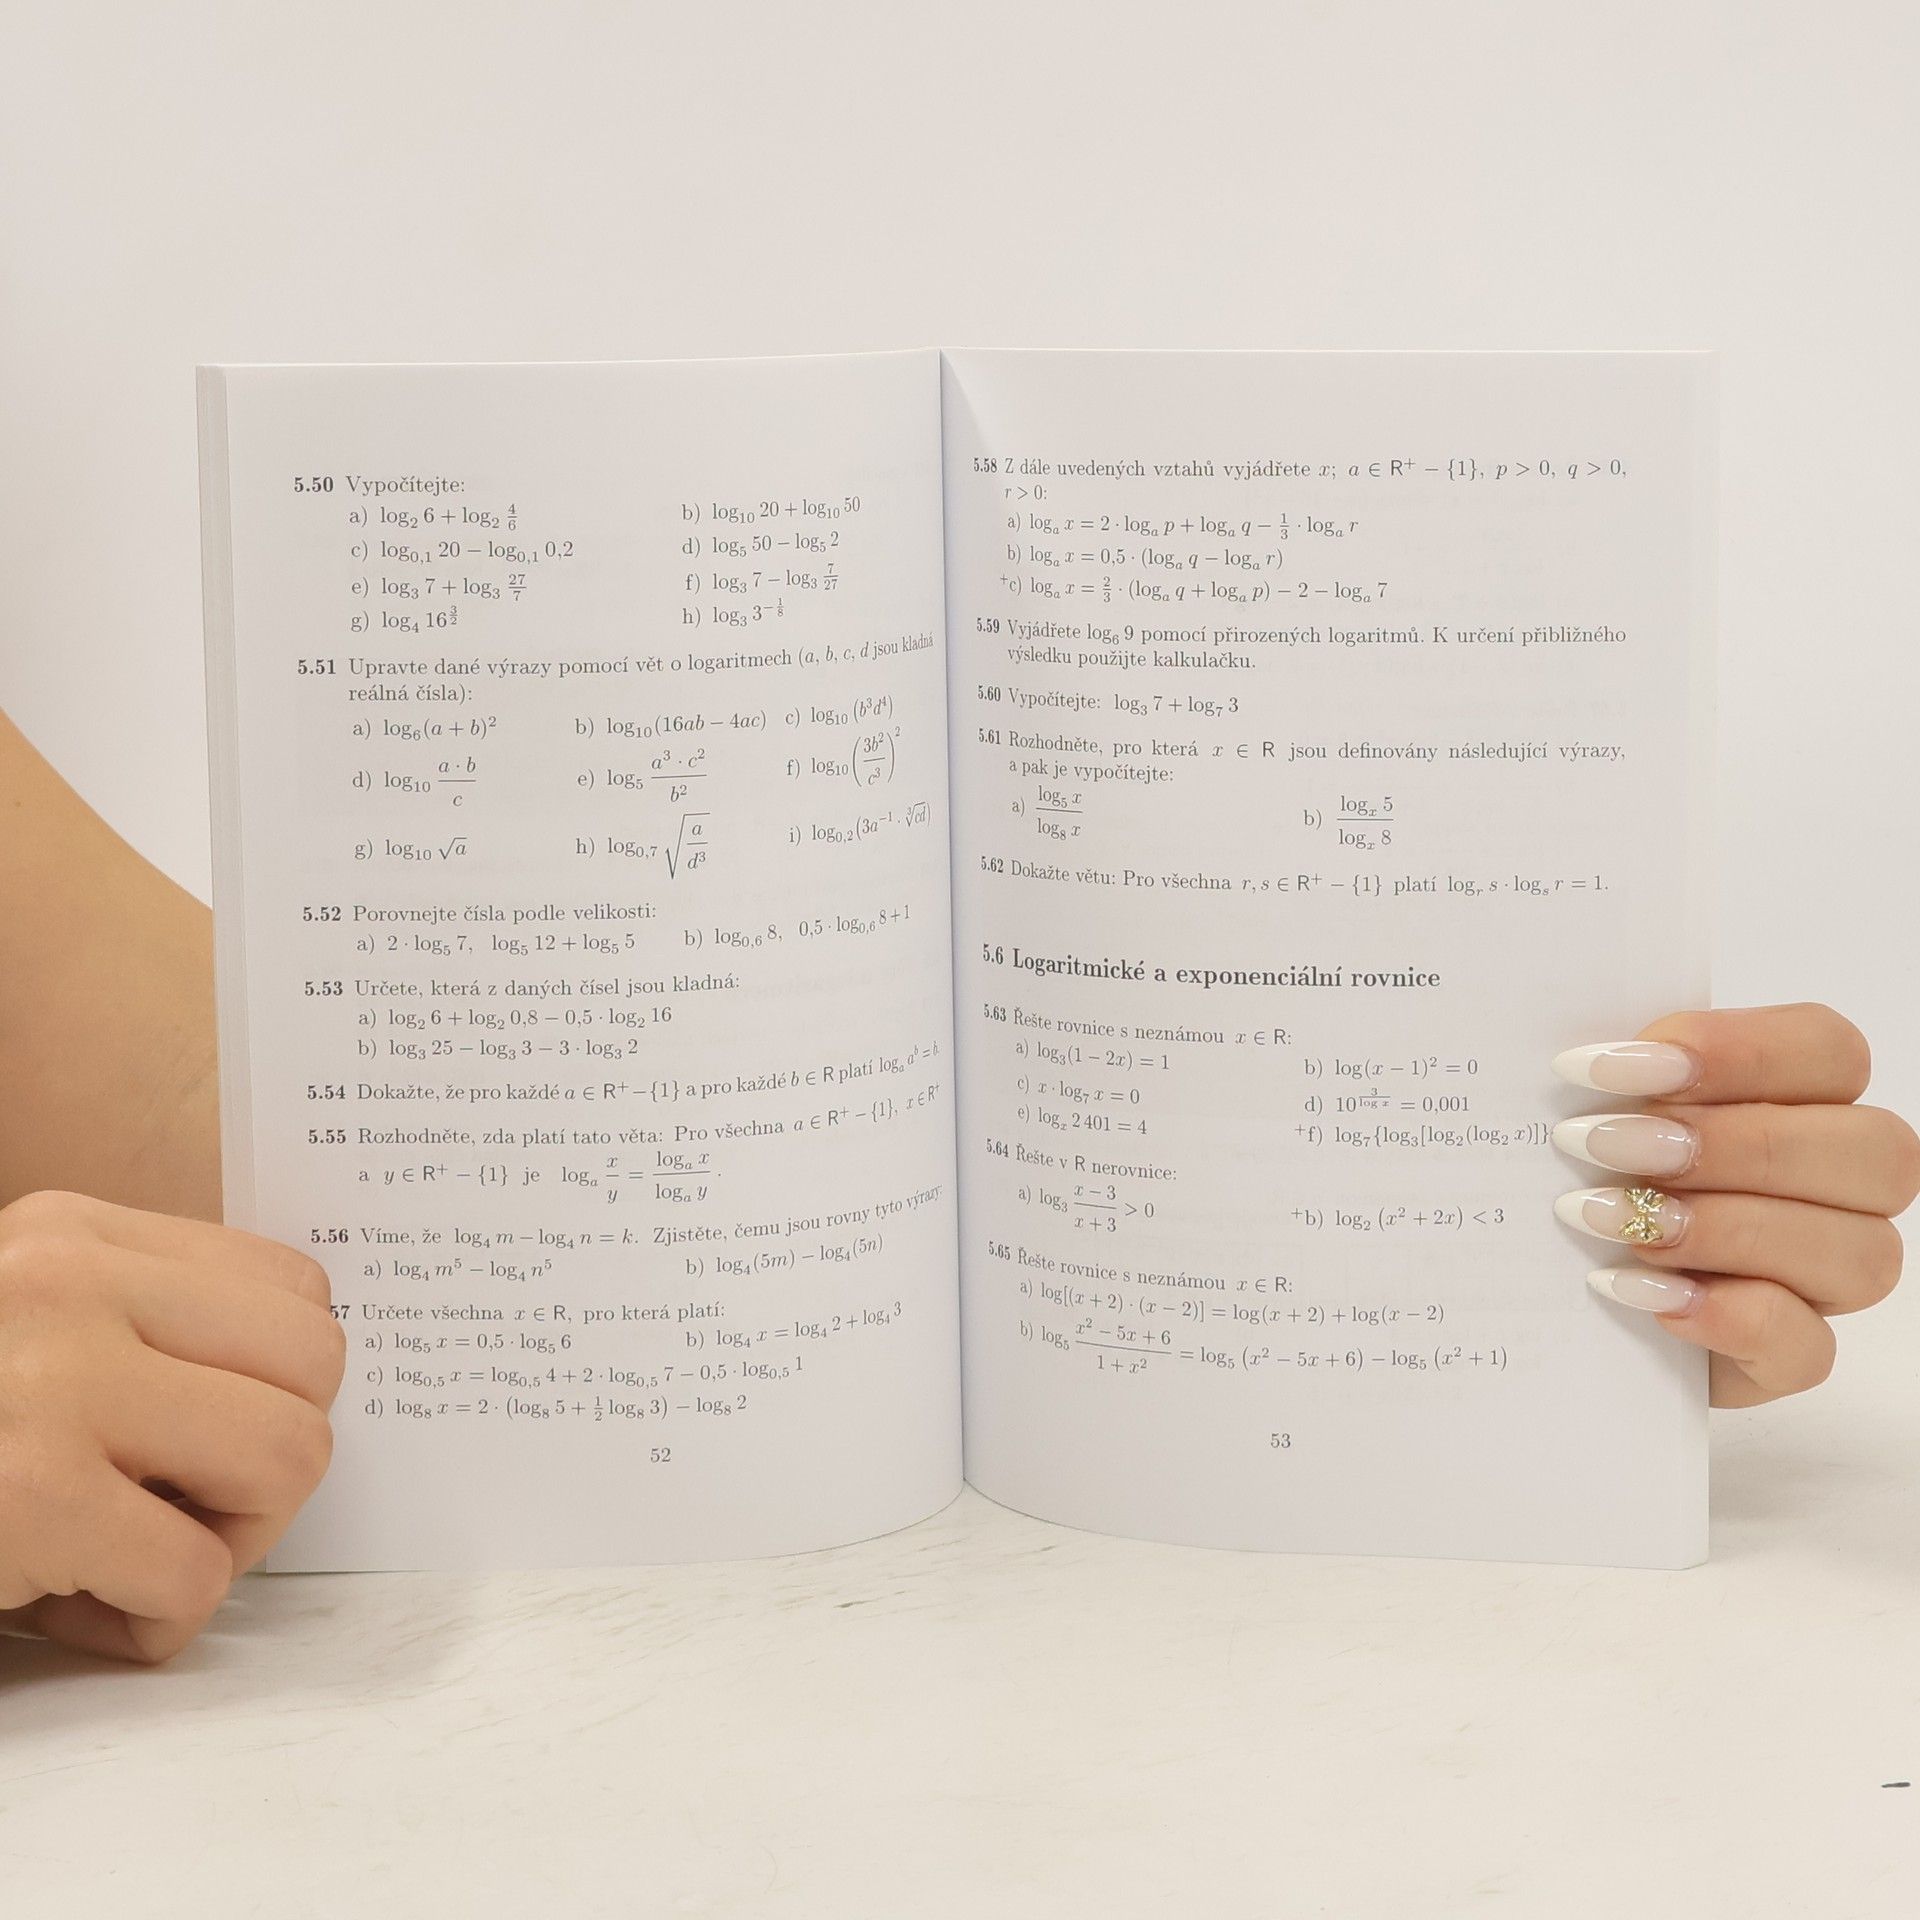 5.50 Vypočítejte:
a) log₂ 6 + log₂ 4/6 b) log₁₀ 20 + log₁₀ 50
c) log₀,₁ 20 − log₀,₁ 0,2 d) log₅ 50 − log₅ 2
e) log₃ 7 + log₃ 27/7 f) log₃ 7 − log₃ 7/27
g) log₄ 16^(3/2) h) log₃ 3^(−1/8)
5.51 Upravte dané výrazy pomocí vět o logaritmech (a, b, c, d jsou kladná
reálná čísla):
a) log₆(a + b)² b) log₁₀(16ab − 4ac) c) log₁₀ (b³d⁴)
d) log₁₀ (a · b)/c e) log₅ (a³ · c²)/b² f) log₁₀ (3b²/c³)²
g) log₁₀ √a h) log₀,₇ √(a/d³) i) log₀,₂ (3a⁻¹ · ∛cd)
5.52 Porovnejte čísla podle velikosti:
a) 2 · log₅ 7, log₅ 12 + log₅ 5 b) log₀,₆ 8, 0,5 · log₀,₆ 8 + 1
5.53 Určete, která z daných čísel jsou kladná:
a) log₂ 6 + log₂ 0,8 − 0,5 · log₂ 16
b) log₃ 25 − log₃ 3 − 3 · log₃ 2
5.54 Dokažte, že pro každé a ∈ R⁺ − {1} a pro každé b ∈ R platí logₐ aᵇ = b.
5.55 Rozhodněte, zda platí tato věta: Pro všechna a ∈ R⁺ − {1}, x ∈ R⁺
a y ∈ R⁺ − {1} je logₐ x/y = (logₐ x)/(logₐ y).
5.56 Víme, že log₄ m − log₄ n = k. Zjistěte, čemu jsou rovny tyto výrazy:
a) log₄ m⁵ − log₄ n⁵ b) log₄(5m) − log₄(5n)
57 Určete všechna x ∈ R, pro která platí:
a) log₅ x = 0,5 · log₅ 6 b) log₄ x = log₄ 2 + log₄ 3
c) log₀,₅ x = log₀,₅ 4 + 2 · log₀,₅ 7 − 0,5 · log₀,₅ 1
d) log₈ x = 2 · (log₈ 5 + ½ log₈ 3) − log₈ 2
52
5.58 Z dále uvedených vztahů vyjádřete x; a ∈ R⁺ − {1}, p > 0, q > 0,
r > 0:
a) logₐ x = 2 · logₐ p + logₐ q − 1/3 · logₐ r
b) logₐ x = 0,5 · (logₐ q − logₐ r)
⁺c) logₐ x = 2/3 · (logₐ q + logₐ p) − 2 − logₐ 7
5.59 Vyjádřete log₆ 9 pomocí přirozených logaritmů. K určení přibližného
výsledku použijte kalkulačku.
5.60 Vypočítejte: log₃ 7 + log₇ 3
5.61 Rozhodněte, pro která x ∈ R jsou definovány následující výrazy,
a pak je vypočítejte:
a) (log₅ x)/(log₈ x) b) (logₓ 5)/(logₓ 8)
5.62 Dokažte větu: Pro všechna r, s ∈ R⁺ − {1} platí logᵣ s · logₛ r = 1.
5.6 Logaritmické a exponenciální rovnice
5.63 Řešte rovnice s neznámou x ∈ R:
a) log₃(1 − 2x) = 1 b) log(x − 1)² = 0
c) x · log₇ x = 0 d) 10^(3/log x) = 0,001
e) logₓ 2 401 = 4 ⁺f) log₇{log₃[log₂(log₂ x)]}
5.64 Řešte v R nerovnice:
a) log₃ (x − 3)/(x + 3) > 0 ⁺b) log₂ (x² + 2x) < 3
5.65 Řešte rovnice s neznámou x ∈ R:
a) log[(x + 2) · (x − 2)] = log(x + 2) + log(x − 2)
b) log₅ (x² − 5x + 6)/(1 + x²) = log₅ (x² − 5x + 6) − log₅ (x² + 1)
53